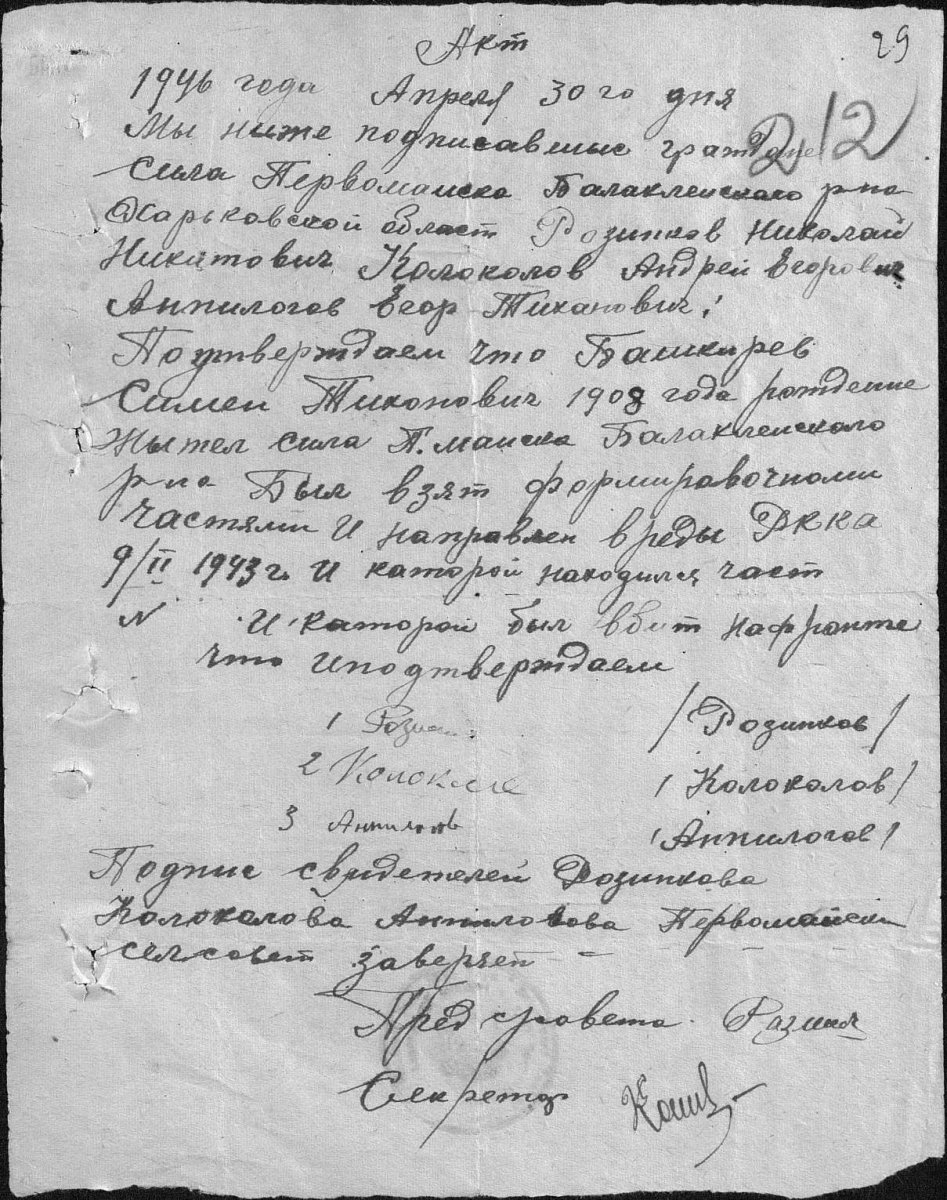 29
Акт
1946 года Апреля 30 го дня
212
Мы ниже подписавшыс граждане
сила Первомайска Балаклейского р на
Харьковской област Розинков Николай
Никитович Колоколов Андрей Егорович
Анпилогов Егор Тиханович!
Потвтверждаем что Башкирев
Симен Тихонович 1908 года рождение
Жытел сила П. майска Балаклейского
р на Был взят формировочными
частями И направлен в реды РККА
9/II 1943 г. И каторой находился част
N И каторой был вбит нафронте
что Иподтверждаем
1 /Розинков/
2 /Колоколов/
3 Анпилогов /Анпилогов/
Подпис свидетелей Розинкова
Колоколова Анпиловова Первомайски
селсовет заверяет
Пред с/совета
Секретар